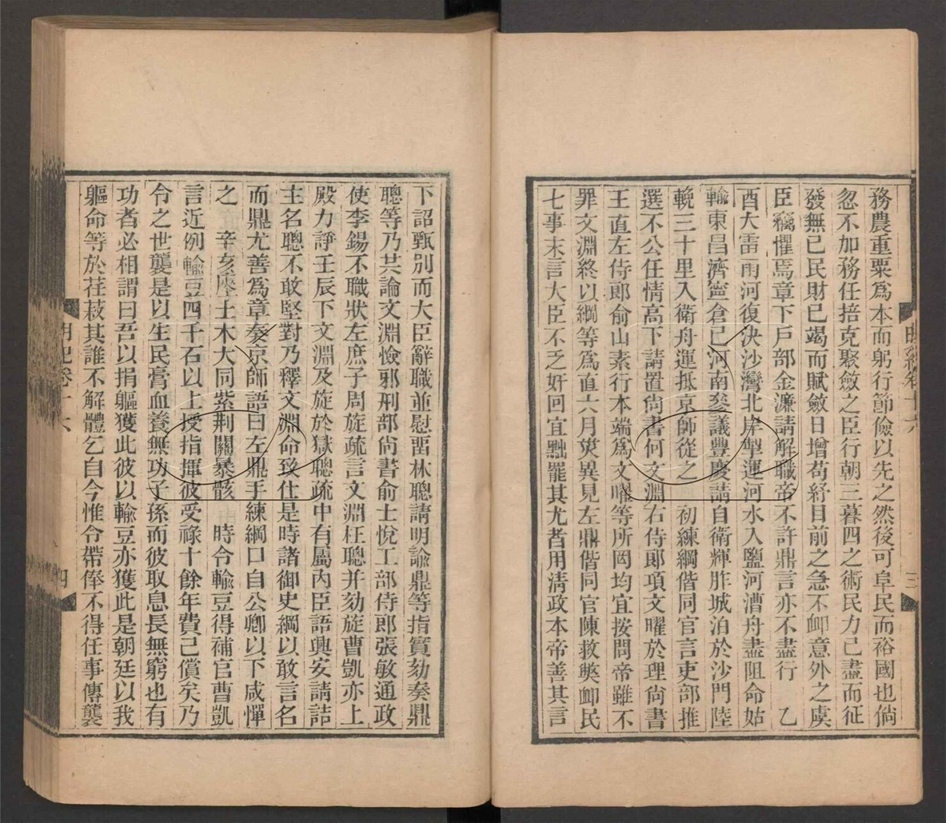 務農重粟爲本而躬行節儉以先之然後可阜民而裕國也倘
忽不加務任掊克聚斂之臣行朝三暮四之術民力已盡而征
發無已民財已竭而賦斂日增苟紓目前之急不卹意外之虞
臣竊懼焉章下戶部金濂請解職帝不許鼎言亦不盡行　乙
酉大雷雨河復決沙灣北岸掣運河水入鹽河漕舟盡阻命姑
輸東昌濟寧倉已河南參議豐慶請自衛輝胙城泊於沙門陸
輓三十里入衛舟運抵京師從之　初練綱偕同官言吏部推
選不公任情高下請置尚書何文淵右侍郎項文曜於理尚書
王直左侍郎俞山素行本端爲文曜等所罔均宜按問帝雖不
罪文淵終以綱等爲直六月災異見左鼎偕同官陳救災卹民
七事末言大臣不乏奸回宜黜罷其尤者用清政本帝善其言
下詔甄別而大臣辭職並慰留林聰請明諭鼎等指實劾奏鼎
聰等乃共論文淵憸邪刑部尚書俞士悅工部侍郎張敏通政
使李錫不職狀左庶子周旋疏言文淵枉聰并劾旋曹凱亦上
殿力諍壬辰下文淵及旋於獄聰疏中有屬內臣語興安請詰
主名聰不敢堅對乃釋文淵命致仕是時諸御史綱以敢言名
而鼎尤善爲章奏京師語曰左鼎手練綱口自公卿以下咸憚
之　辛亥塞土木大同紫荆關暴骸　時令輸豆得補官曹凱
言近例輸豆四千石以上授指揮彼受祿十餘年費已償矣乃
令之世襲是以生民膏血養無功子孫而彼取息長無窮也有
功者必相謂曰吾以捐軀獲此彼以輸豆亦獲此是朝廷以我
軀命等於荏菽其誰不解體乞自今惟令帶俸不得任事傳襲
明紀卷十六
四